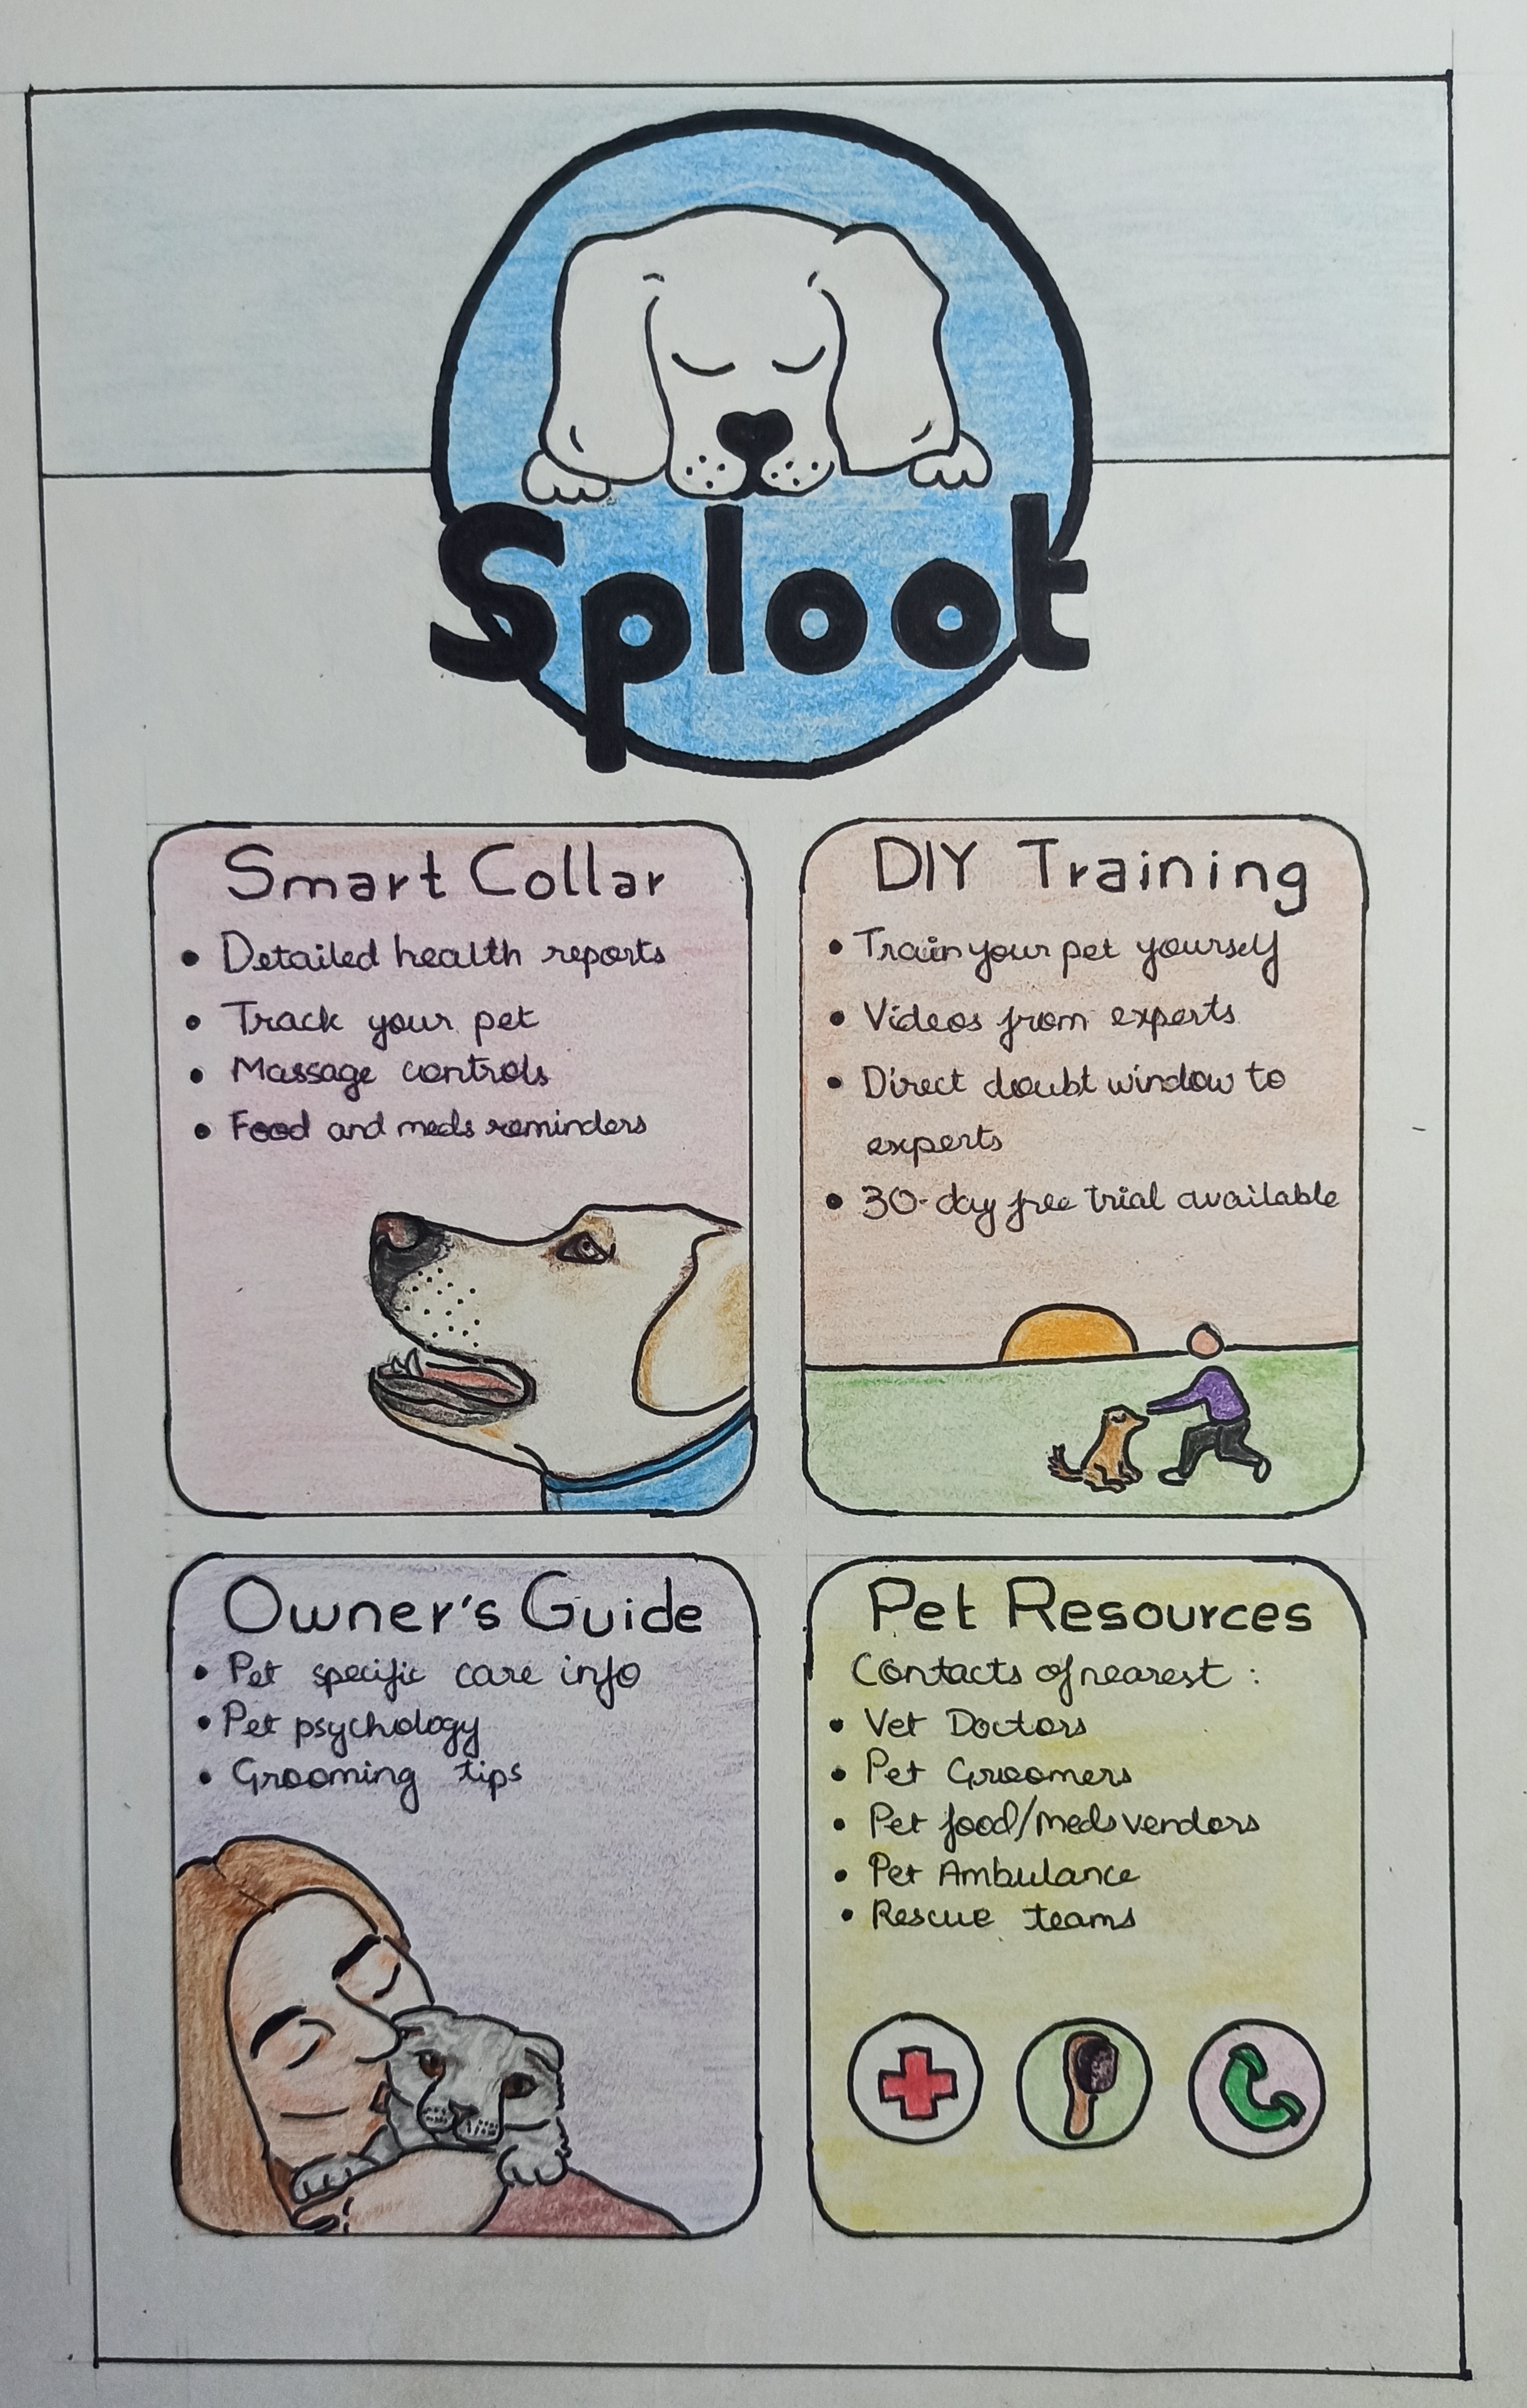 Sploot
Smart Collar
• Detailed health reports
• Track your pet
• Massage controls
• Food and meds reminders
DIY Training
• Train your pet yourself
• Videos from experts
• Direct doubt window to
experts
• 30-day free trial available
Owner's Guide
• Pet specific care info
• Pet psychology
• Grooming tips
Pet Resources
Contacts of nearest :
• Vet Doctors
• Pet Groomers
• Pet food/meds vendors
• Pet Ambulance
• Rescue teams